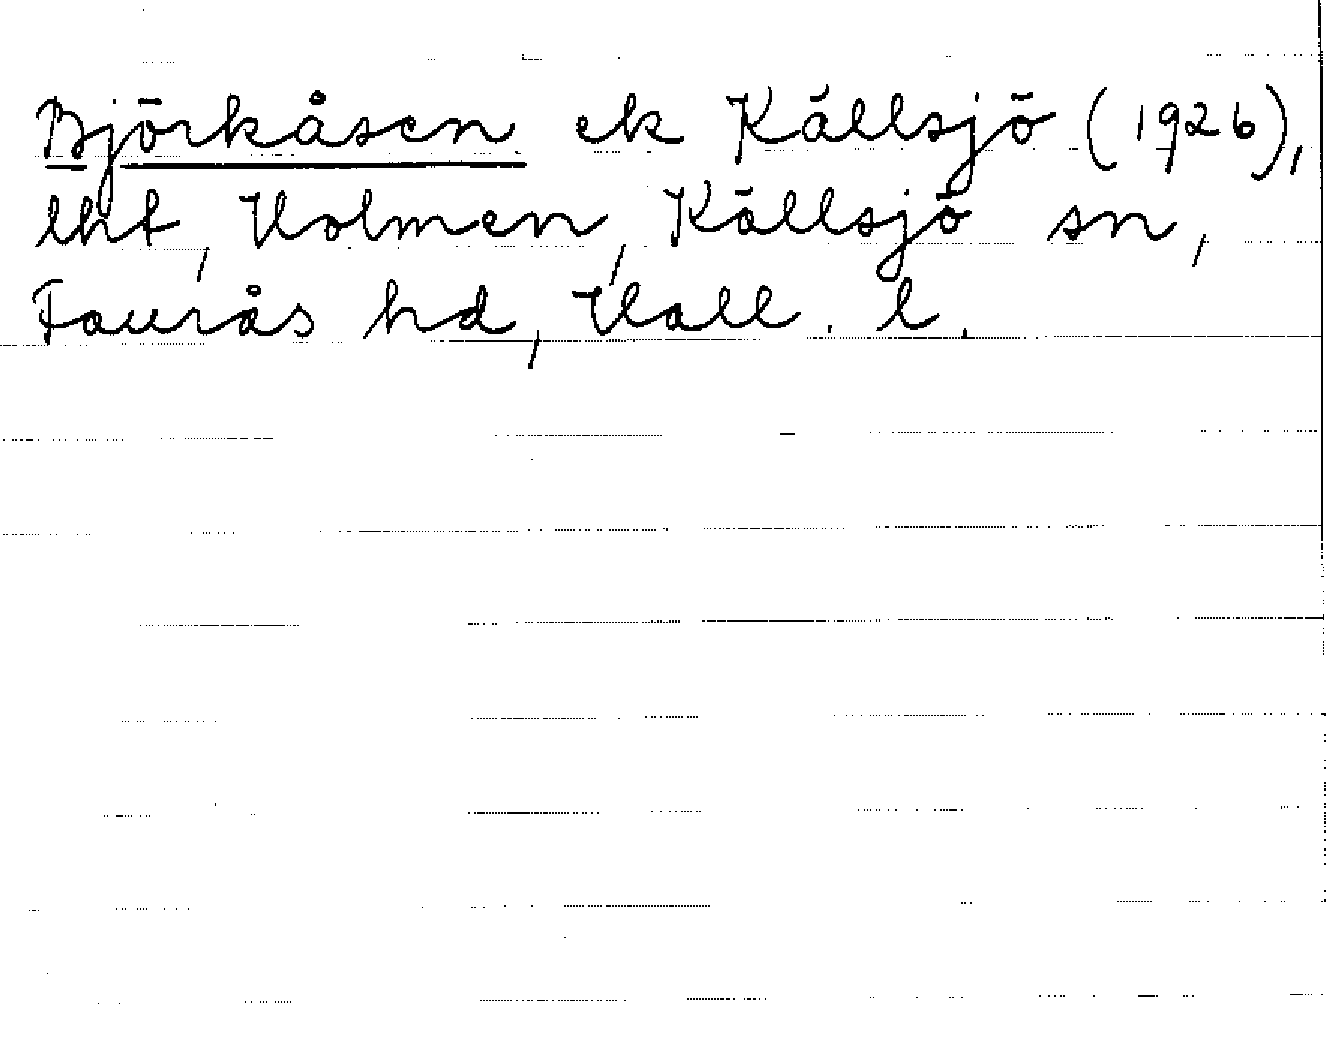 Björkåsen ek Källsjö (1926),
lht, Holmen, Källsjö sn,
Faurås hd, Hall. l.